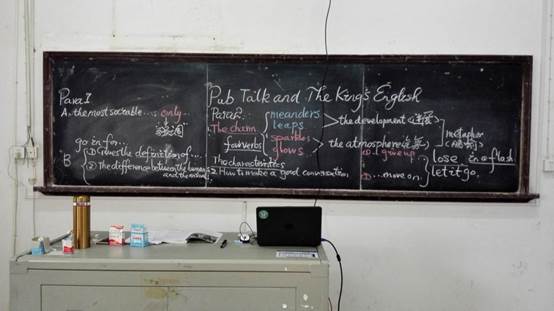 Pub Talk and The King's English
Para I
A. the most sociable .... only...
go in for...
B ① Gives the definition of...
② The difference between the human
and the animal
Para 2.
The charm
four verbs
meanders
leaps
sparkles
glows
the development
the atmosphere
metaphor
The characteristics
2. How to make a good conversation
① ... give up
② ... move on
lose in a flash
let it go.